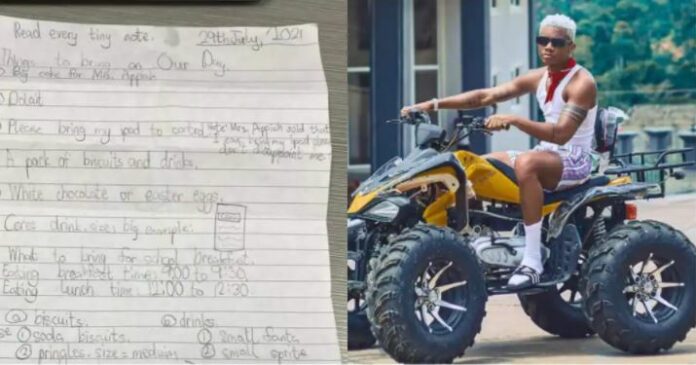 Read every tiny note.
29th July, 2021
Things to bring on Our Day
Big cake for Mrs. Appiah
Please bring my ipad to
Note Mrs. Appiah said that
don't disappoint me
A pack of biscuits and drinks.
White chocolate or easter eggs.
Ceres drink. size: big example:
What to bring for school breakfast.
Eating breakfast time: 9:00 to 9:30
Eating lunch time: 12:00 to 12:30
ⓐ biscuits.
ⓑ drinks.
① soda biscuits.
① small fanta
② pringles. size = medium
② small sprite